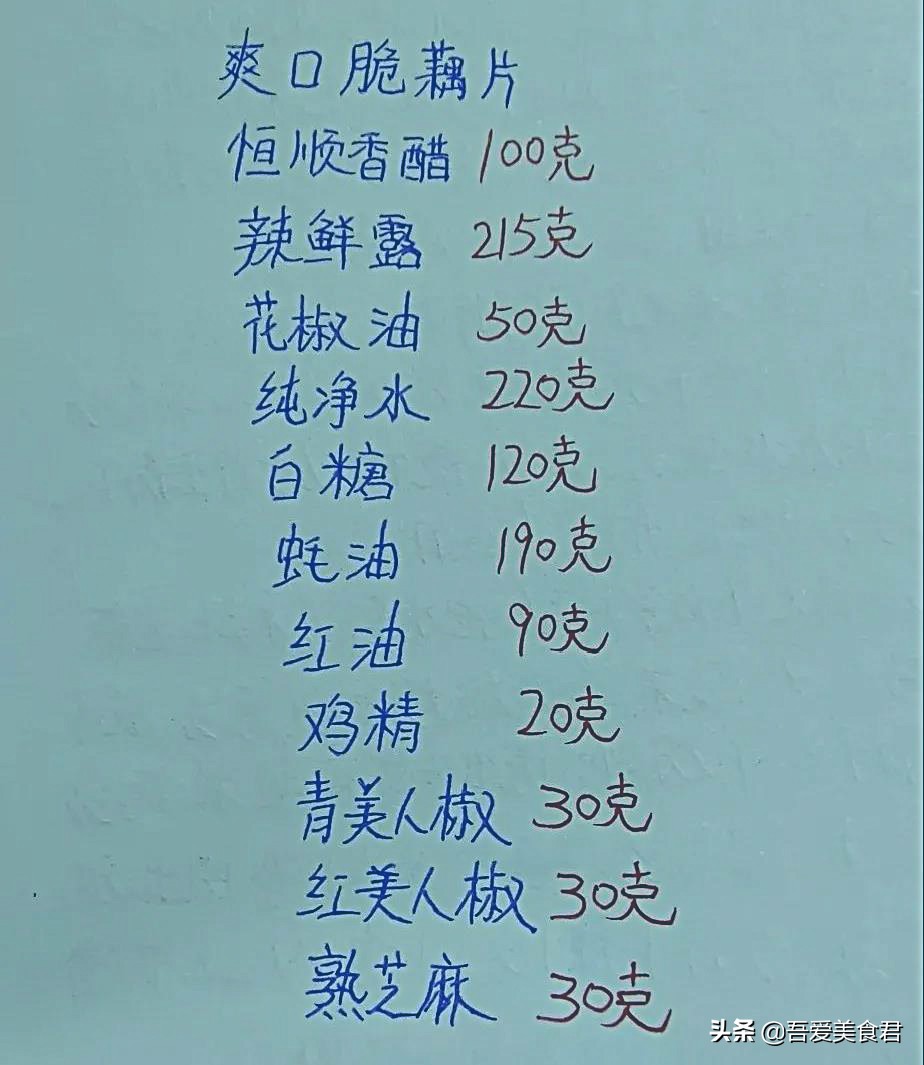 爽口脆藕片
恒顺香醋 100克
辣鲜露 215克
花椒油 50克
纯净水 220克
白糖 120克
蚝油 190克
红油 90克
鸡精 20克
青美人椒 30克
红美人椒 30克
熟芝麻 30克
头条 @吾爱美食君